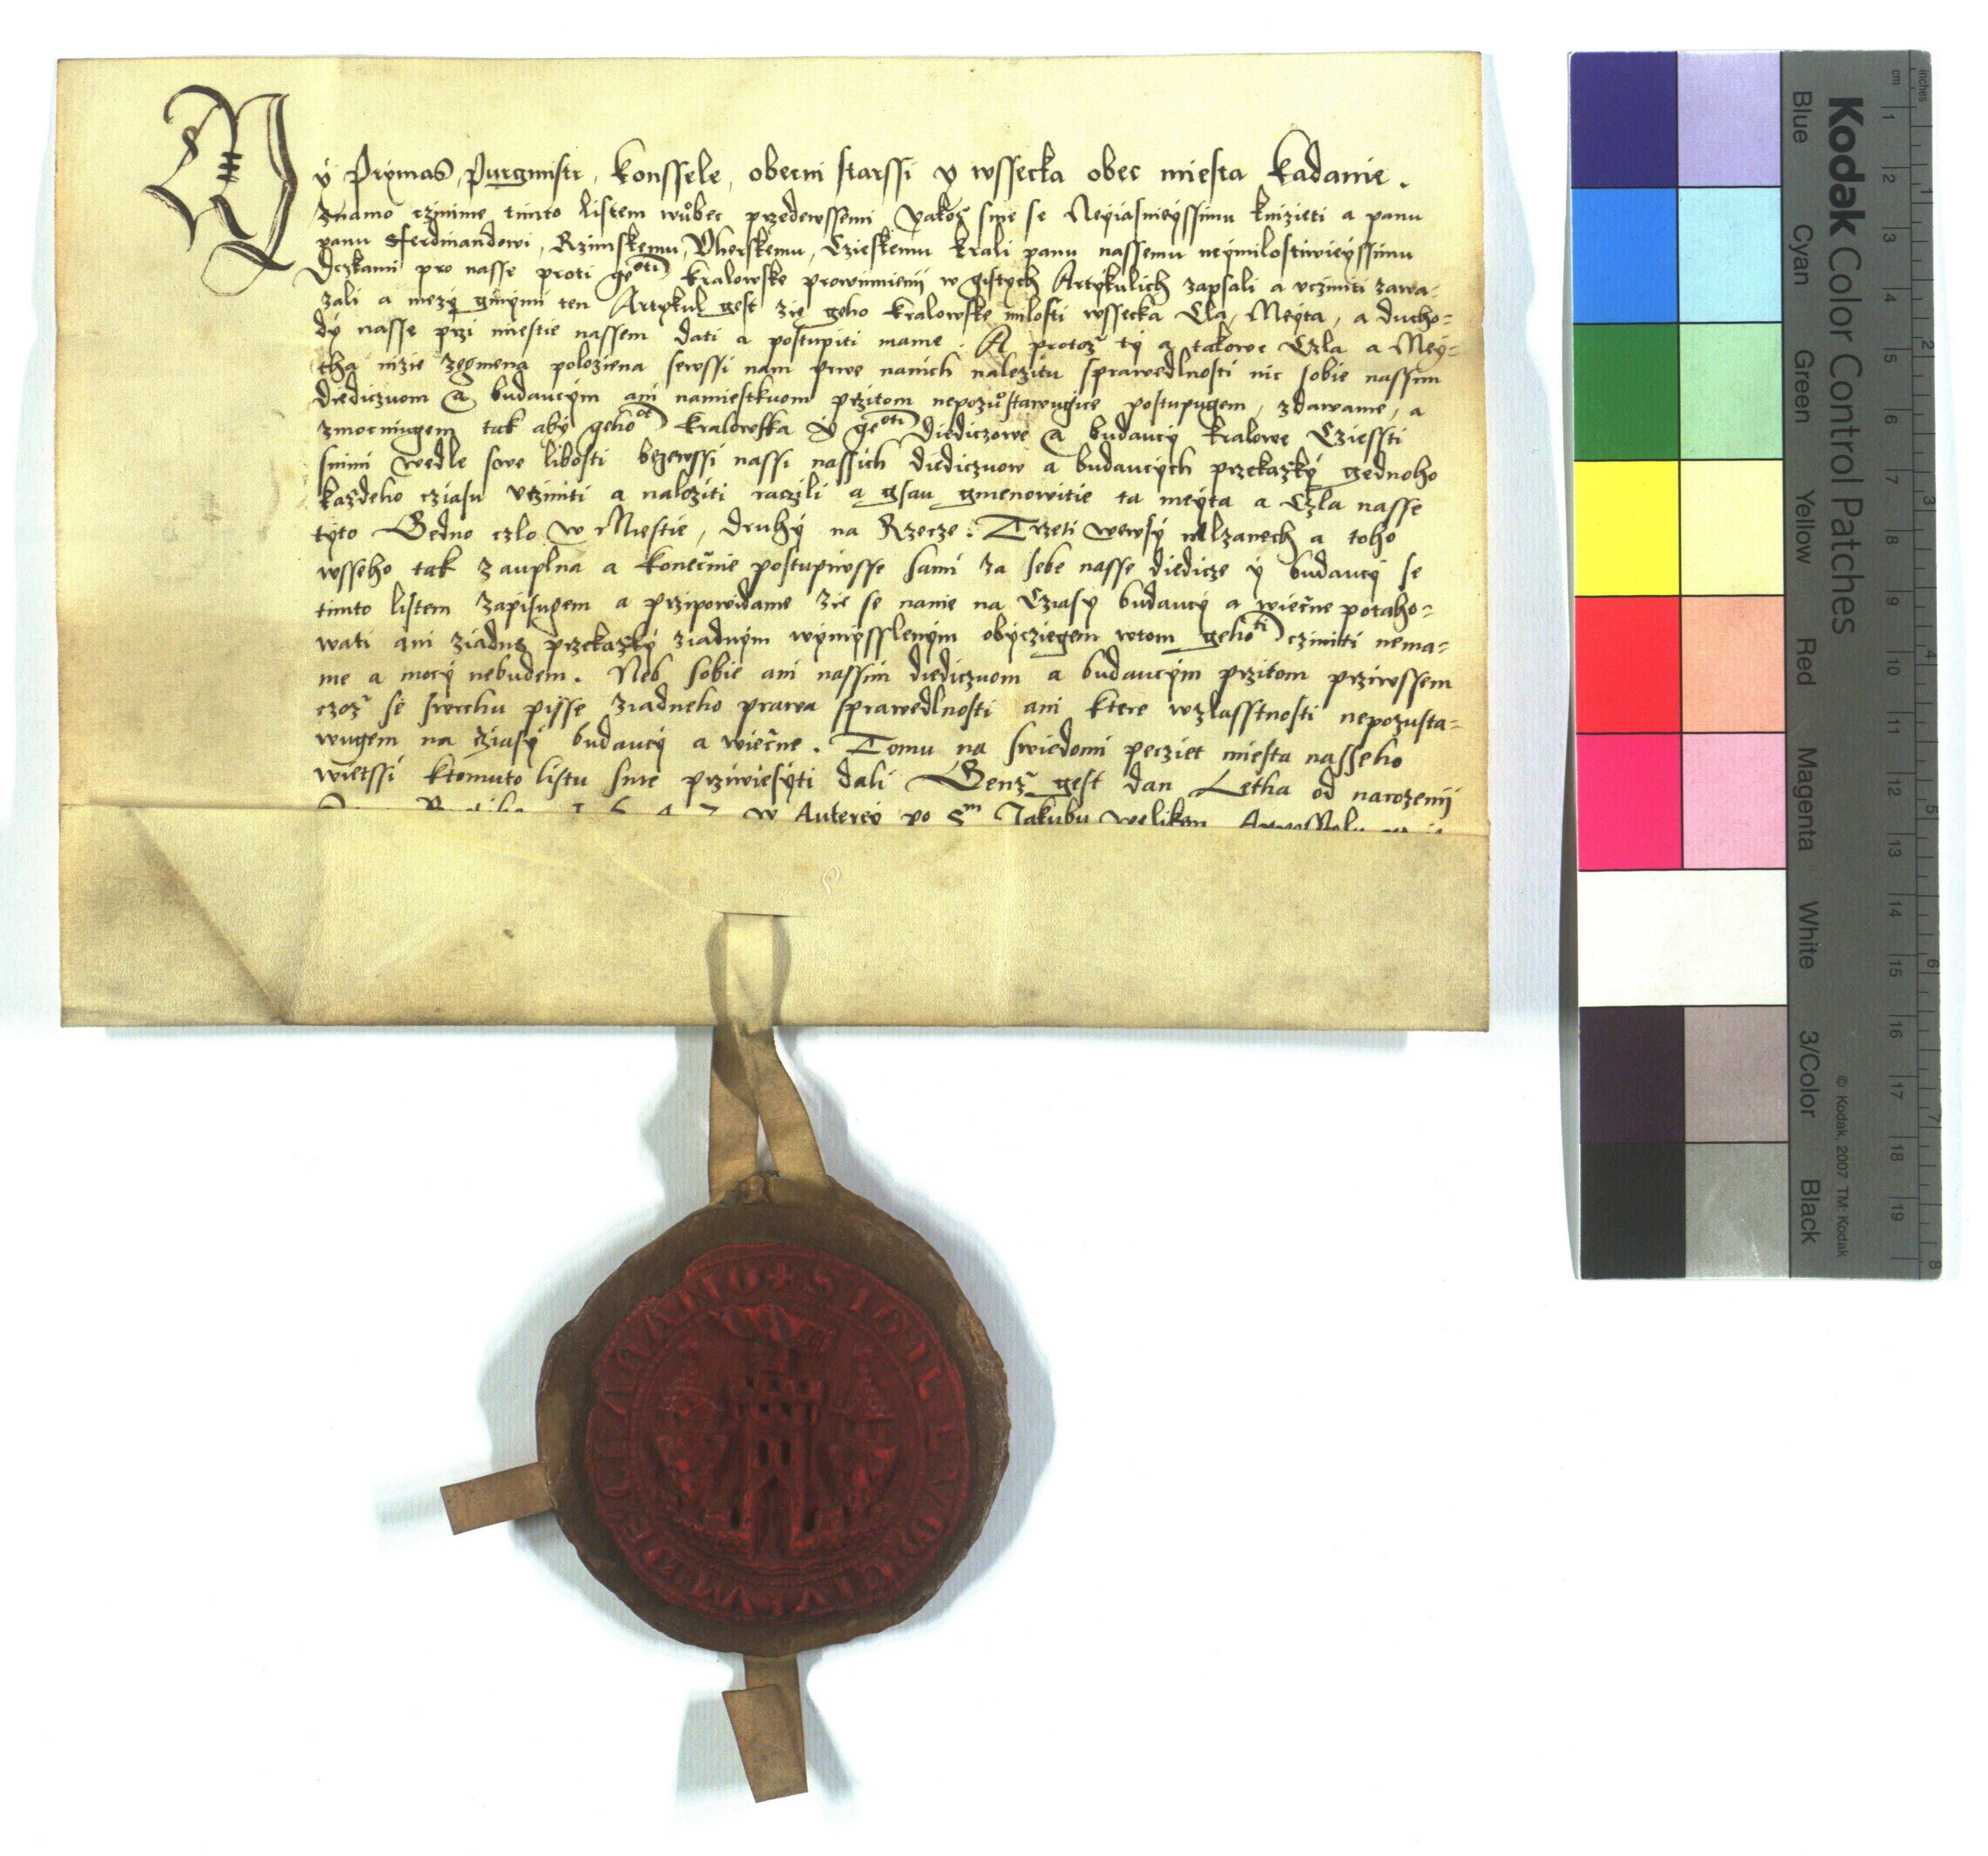 Wy Prymas, Purgmistr, Konssele, obecni starssi y wssecka obec miesta Kadanie.
Znamo czinime timto listem wuobec przedewssemi Yakoz sme se Neyiasnieyssimu knizieti a panu
panu Fferdinandowi, Rzimskemu, Vherskemu, Czieskemu krali panu nassemu neymilostiwieyssimu
pro nasse proti geoti Kralowske prowinnienij w gistych Artykulich zapsali a vcziniti zawa-
zali a mezy ginymi ten Artykul gest zie geho Kralowske milosti wssecka Cla, Meyta, a ducho=
dy nasse przi miestie nassem dati a postupiti mame. A protoz ty a takowe Czla a Mey=
tha nizie zegmena poloziena sewssi nam prwe nanich nalezitu sprawedlnosti nic sobie nassim
diediczuom a budaucym ani namiestkuom przitom nepozuostawugice postupugem, zdawame, a
zmocniugem tak aby gehoot Kralowska y geoti diediczowe a budaucy Kralowe Cziessti
snimi wedle swe libosti bezewssi nassi nassich diediczuow a budaucych przekazky gednoho
kazdeho cziasu vcziniti a naloziti raczili a gsau gmenowitie ta meyta a Czla nasse
tyto Gedno czlo w Miestie, druhy na Rzecze. Trzeti wewsy a toho
wsseho tak zauplna a konecznie postupiwsse sami za sebe nasse diedicze y budaucy se
timto listem zapisugem a przipowidame zie se nanie na Cziasy budaucy a wieczne potaho=
wati ani ziadne przekazky ziadnym wymysslenym obycziegem wtom gehoti cziniti nema=
me a mocy nebudem. Neb sobie ani nassim diediczuom a budaucym przitom prziwssem
czoz se swrchu pisse ziadneho prawa sprawedlnosti ani ktere wzlasstnosti nepozusta=
wugem na cziasy budaucy a wieczne. Tomu na swiedomi pecziet miesta nasseho
wietssi ktomuto listu sme prziwiesyti dali Genz gest dan Letha od narozenij
1547 w Auterey po Sm Jakubu welikem
+ SIGILLVM CIVIVM DE CADANO
Kodak Color Control Patches
Blue Cyan Green Yellow Red Magenta White 3/Color Black
© Kodak, 2007 TM: Kodak
inches 1 2 3 4 5 6 7 8
cm 1 2 3 4 5 6 7 8 9 10 11 12 13 14 15 16 17 18 19